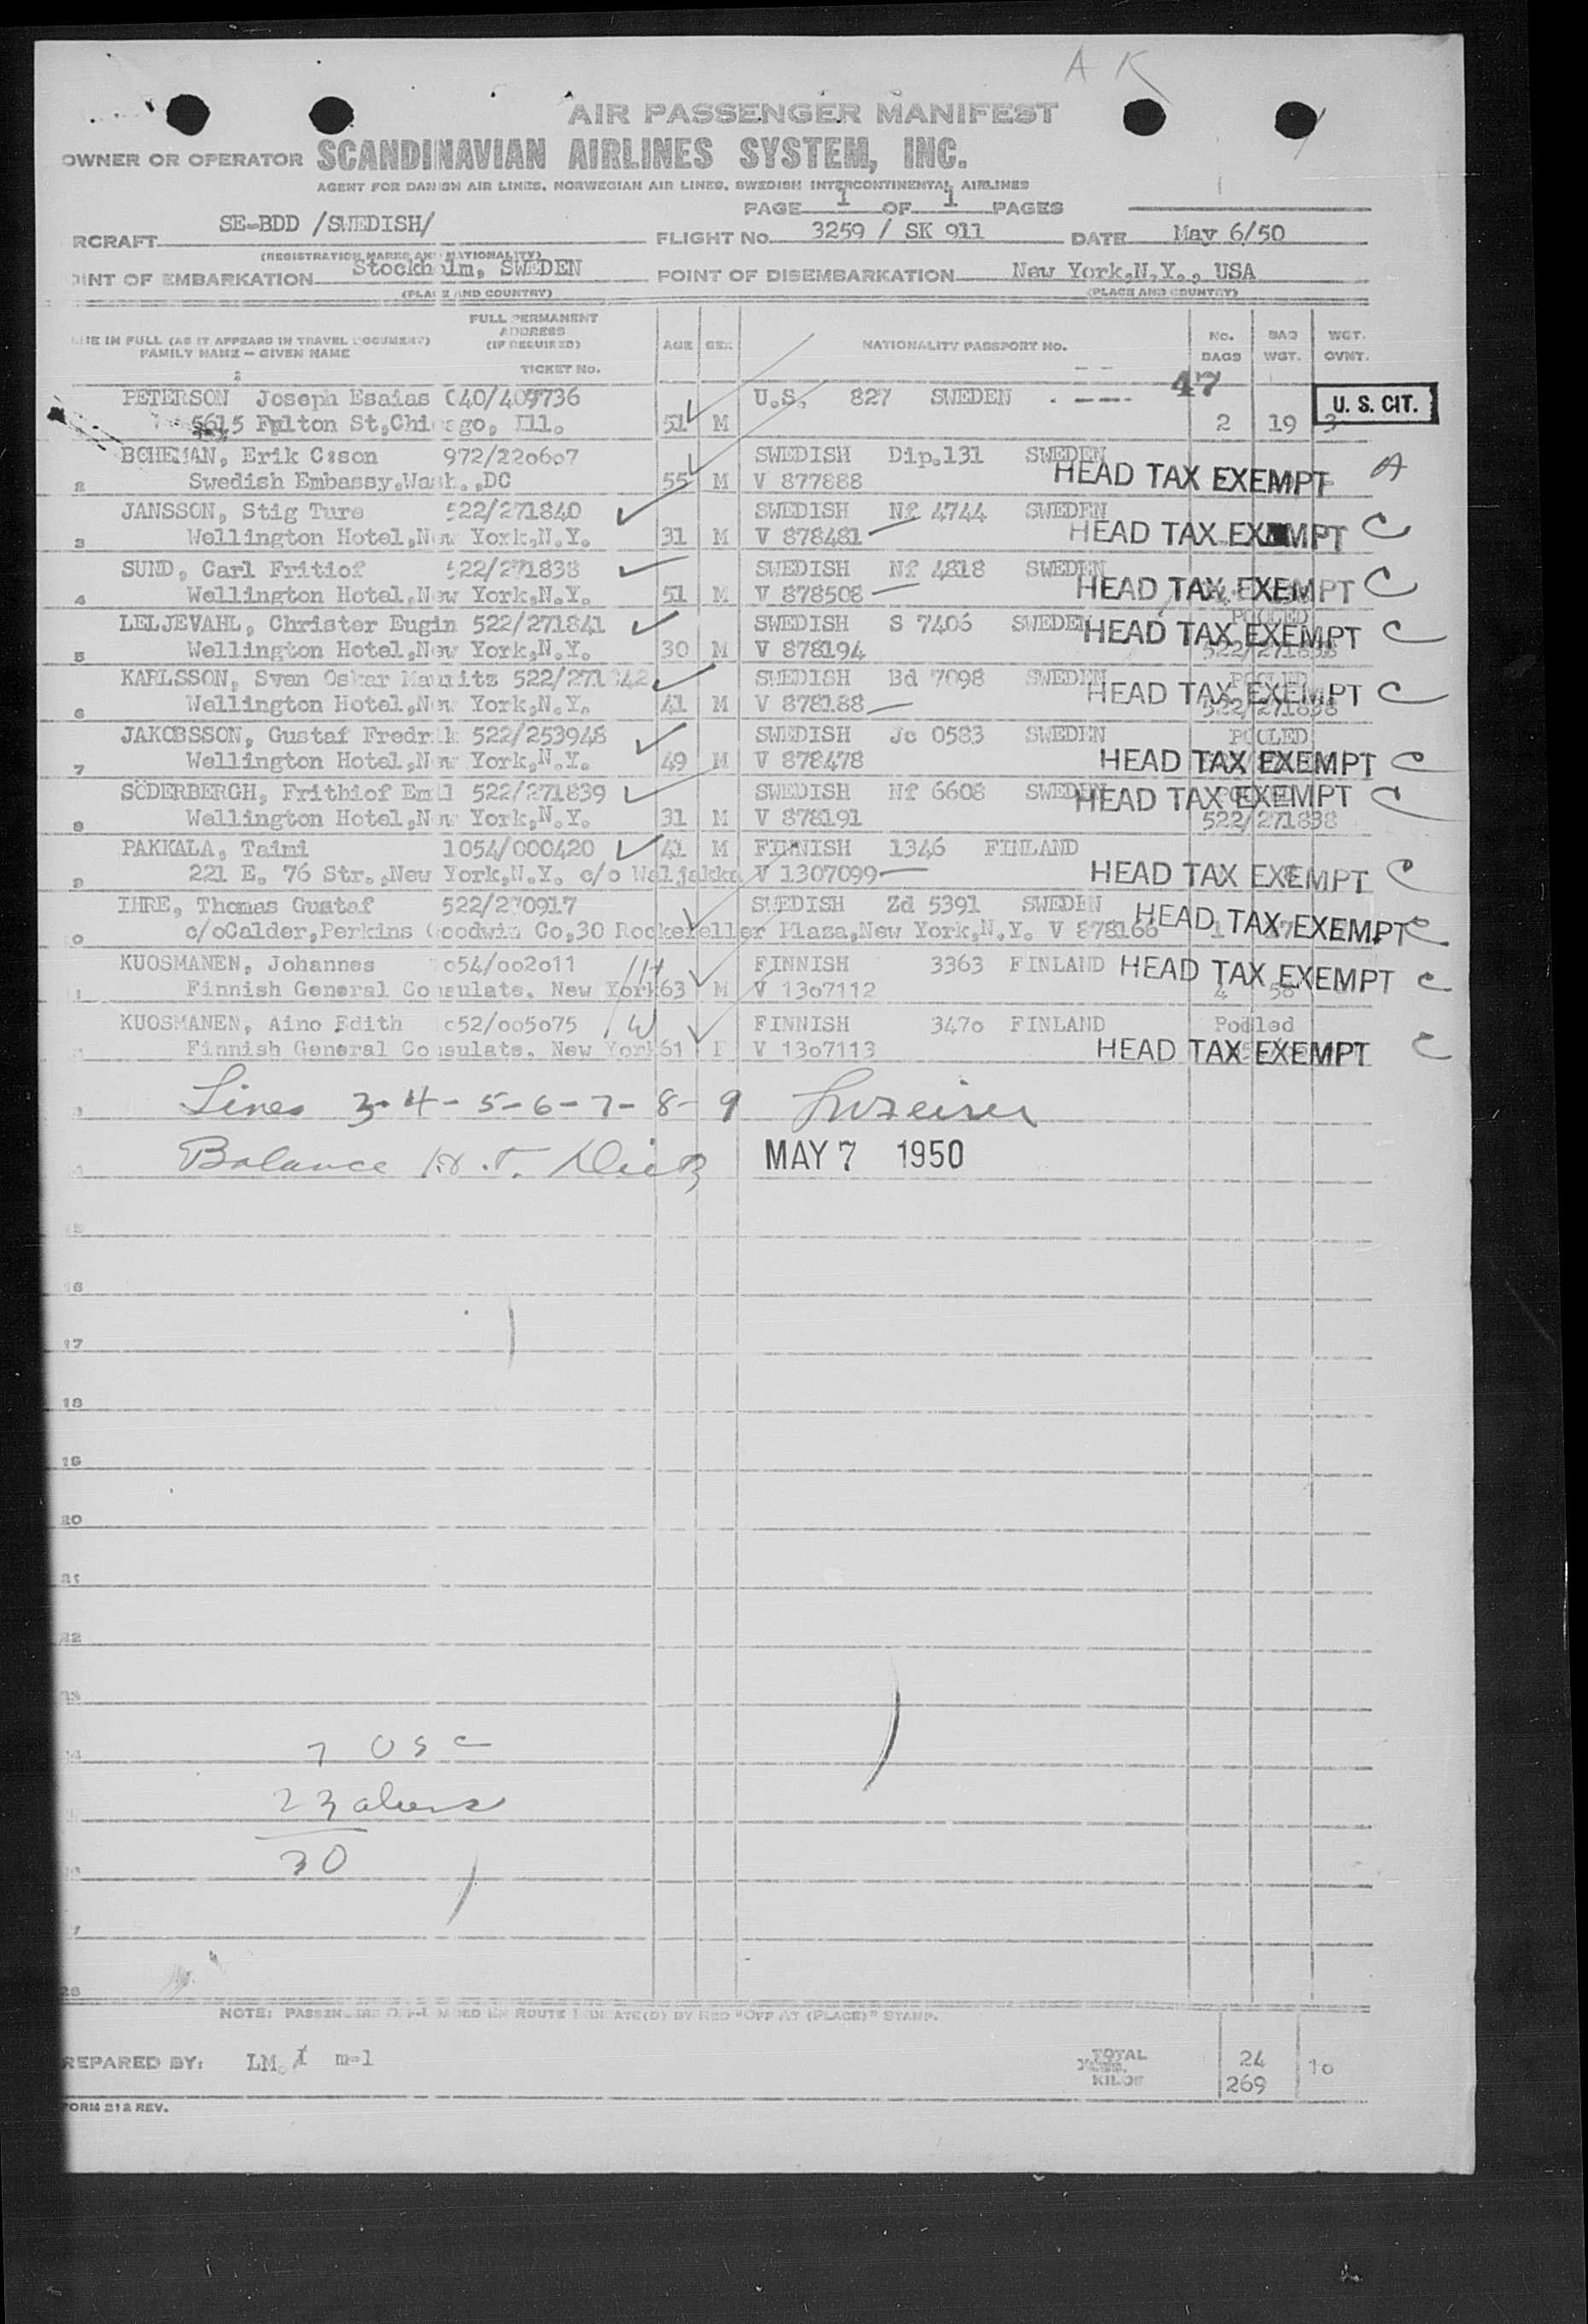 A K
AIR PASSENGER MANIFEST
OWNER OR OPERATOR SCANDINAVIAN AIRLINES SYSTEM, INC.
AGENT FOR DANISH AIR LINES, NORWEGIAN AIR LINES, SWEDISH INTERCONTINENTAL AIRLINES
PAGE 1 OF 1 PAGES
RCRAFT SE-BDD /SWEDISH/ FLIGHT No. 3259 / SK 911 DATE May 6/50
(REGISTRATION MARKS AND NATIONALITY)
OINT OF EMBARKATION Stockholm, SWEDEN POINT OF DISEMBARKATION New York,N.Y., USA
(PLACE AND COUNTRY) (PLACE AND COUNTRY)
ME IN FULL (AS IT APPEARS IN TRAVEL DOCUMENT) FAMILY NAME – GIVEN NAME
FULL PERMANENT ADDRESS (IF REQUIRED) TICKET No.
AGE SEX NATIONALITY PASSPORT NO. No. BAGS BAG WGT. WGT. OVNT.
PETERSON Joseph Esaias 040/409736 U.S. 827 SWEDEN 47
5615 Fulton St,Chicago, Ill. 51 M 2 19 3 U. S. CIT.
BOHEMAN, Erik C:son 972/220607 SWEDISH Dip.131 SWEDEN
2 Swedish Embassy,Wash.,DC 55 M V 877888 HEAD TAX EXEMPT A
JANSSON, Stig Ture 522/271840 SWEDISH Nf 4744 SWEDEN
3 Wellington Hotel,New York,N.Y. 31 M V 878481 HEAD TAX EXEMPT C
SUND, Carl Fritiof 522/271838 SWEDISH Nf 4818 SWEDEN
4 Wellington Hotel,New York,N.Y. 51 M V 878508 HEAD TAX EXEMPT C
LELJEVAHL, Christer Eugin 522/271841 SWEDISH S 7406 SWEDEN POOLED HEAD TAX EXEMPT C
5 Wellington Hotel,New York,N.Y. 30 M V 878194 522/271838
KARLSSON, Sven Oskar Mauritz 522/271842 SWEDISH Bd 7098 SWEDEN POOLED HEAD TAX EXEMPT C
6 Wellington Hotel,New York,N.Y. 41 M V 878188 522/271838
JAKOBSSON, Gustaf Fredrik 522/253948 SWEDISH Jc 0583 SWEDEN POOLED
7 Wellington Hotel,New York,N.Y. 49 M V 878478 HEAD TAX EXEMPT C
SÖDERBERGH, Frithiof Emil 522/271839 SWEDISH Nf 6608 SWEDEN HEAD TAX EXEMPT C
8 Wellington Hotel,New York,N.Y. 31 M V 878191 522/271838
PAKKALA, Taimi 1054/000420 41 M FINNISH 1346 FINLAND
9 221 E. 76 Str.,New York,N.Y. c/o Waljakka V 1307099 HEAD TAX EXEMPT C
IHRE, Thomas Gustaf 522/270917 SWEDISH Zd 5391 SWEDEN
c/oCalder,Perkins Goodwin Co,30 Rockefeller Plaza,New York,N.Y. V 878166 HEAD TAX EXEMPT C
KUOSMANEN, Johannes 1054/002011 H FINNISH 3363 FINLAND HEAD TAX EXEMPT C
Finnish General Consulate, New York 63 M V 1307112 4 58
KUOSMANEN, Aino Edith 1052/005075 W FINNISH 3470 FINLAND Pooled
Finnish General Consulate, New York 61 F V 1307113 HEAD TAX EXEMPT C
Lines 3-4-5-6-7-8-9
Balance MAY 7 1950
15
16
17
18
19
20
21
22
23
7 USC
23 aliens
30
28
NOTE: PASSENGERS OFF-LOADED EN ROUTE INDICATE(D) BY RED "OFF AT (PLACE)" STAMP.
REPARED BY: LM. m-l TOTAL 24 10
KILOS 269
FORM 212 REV.